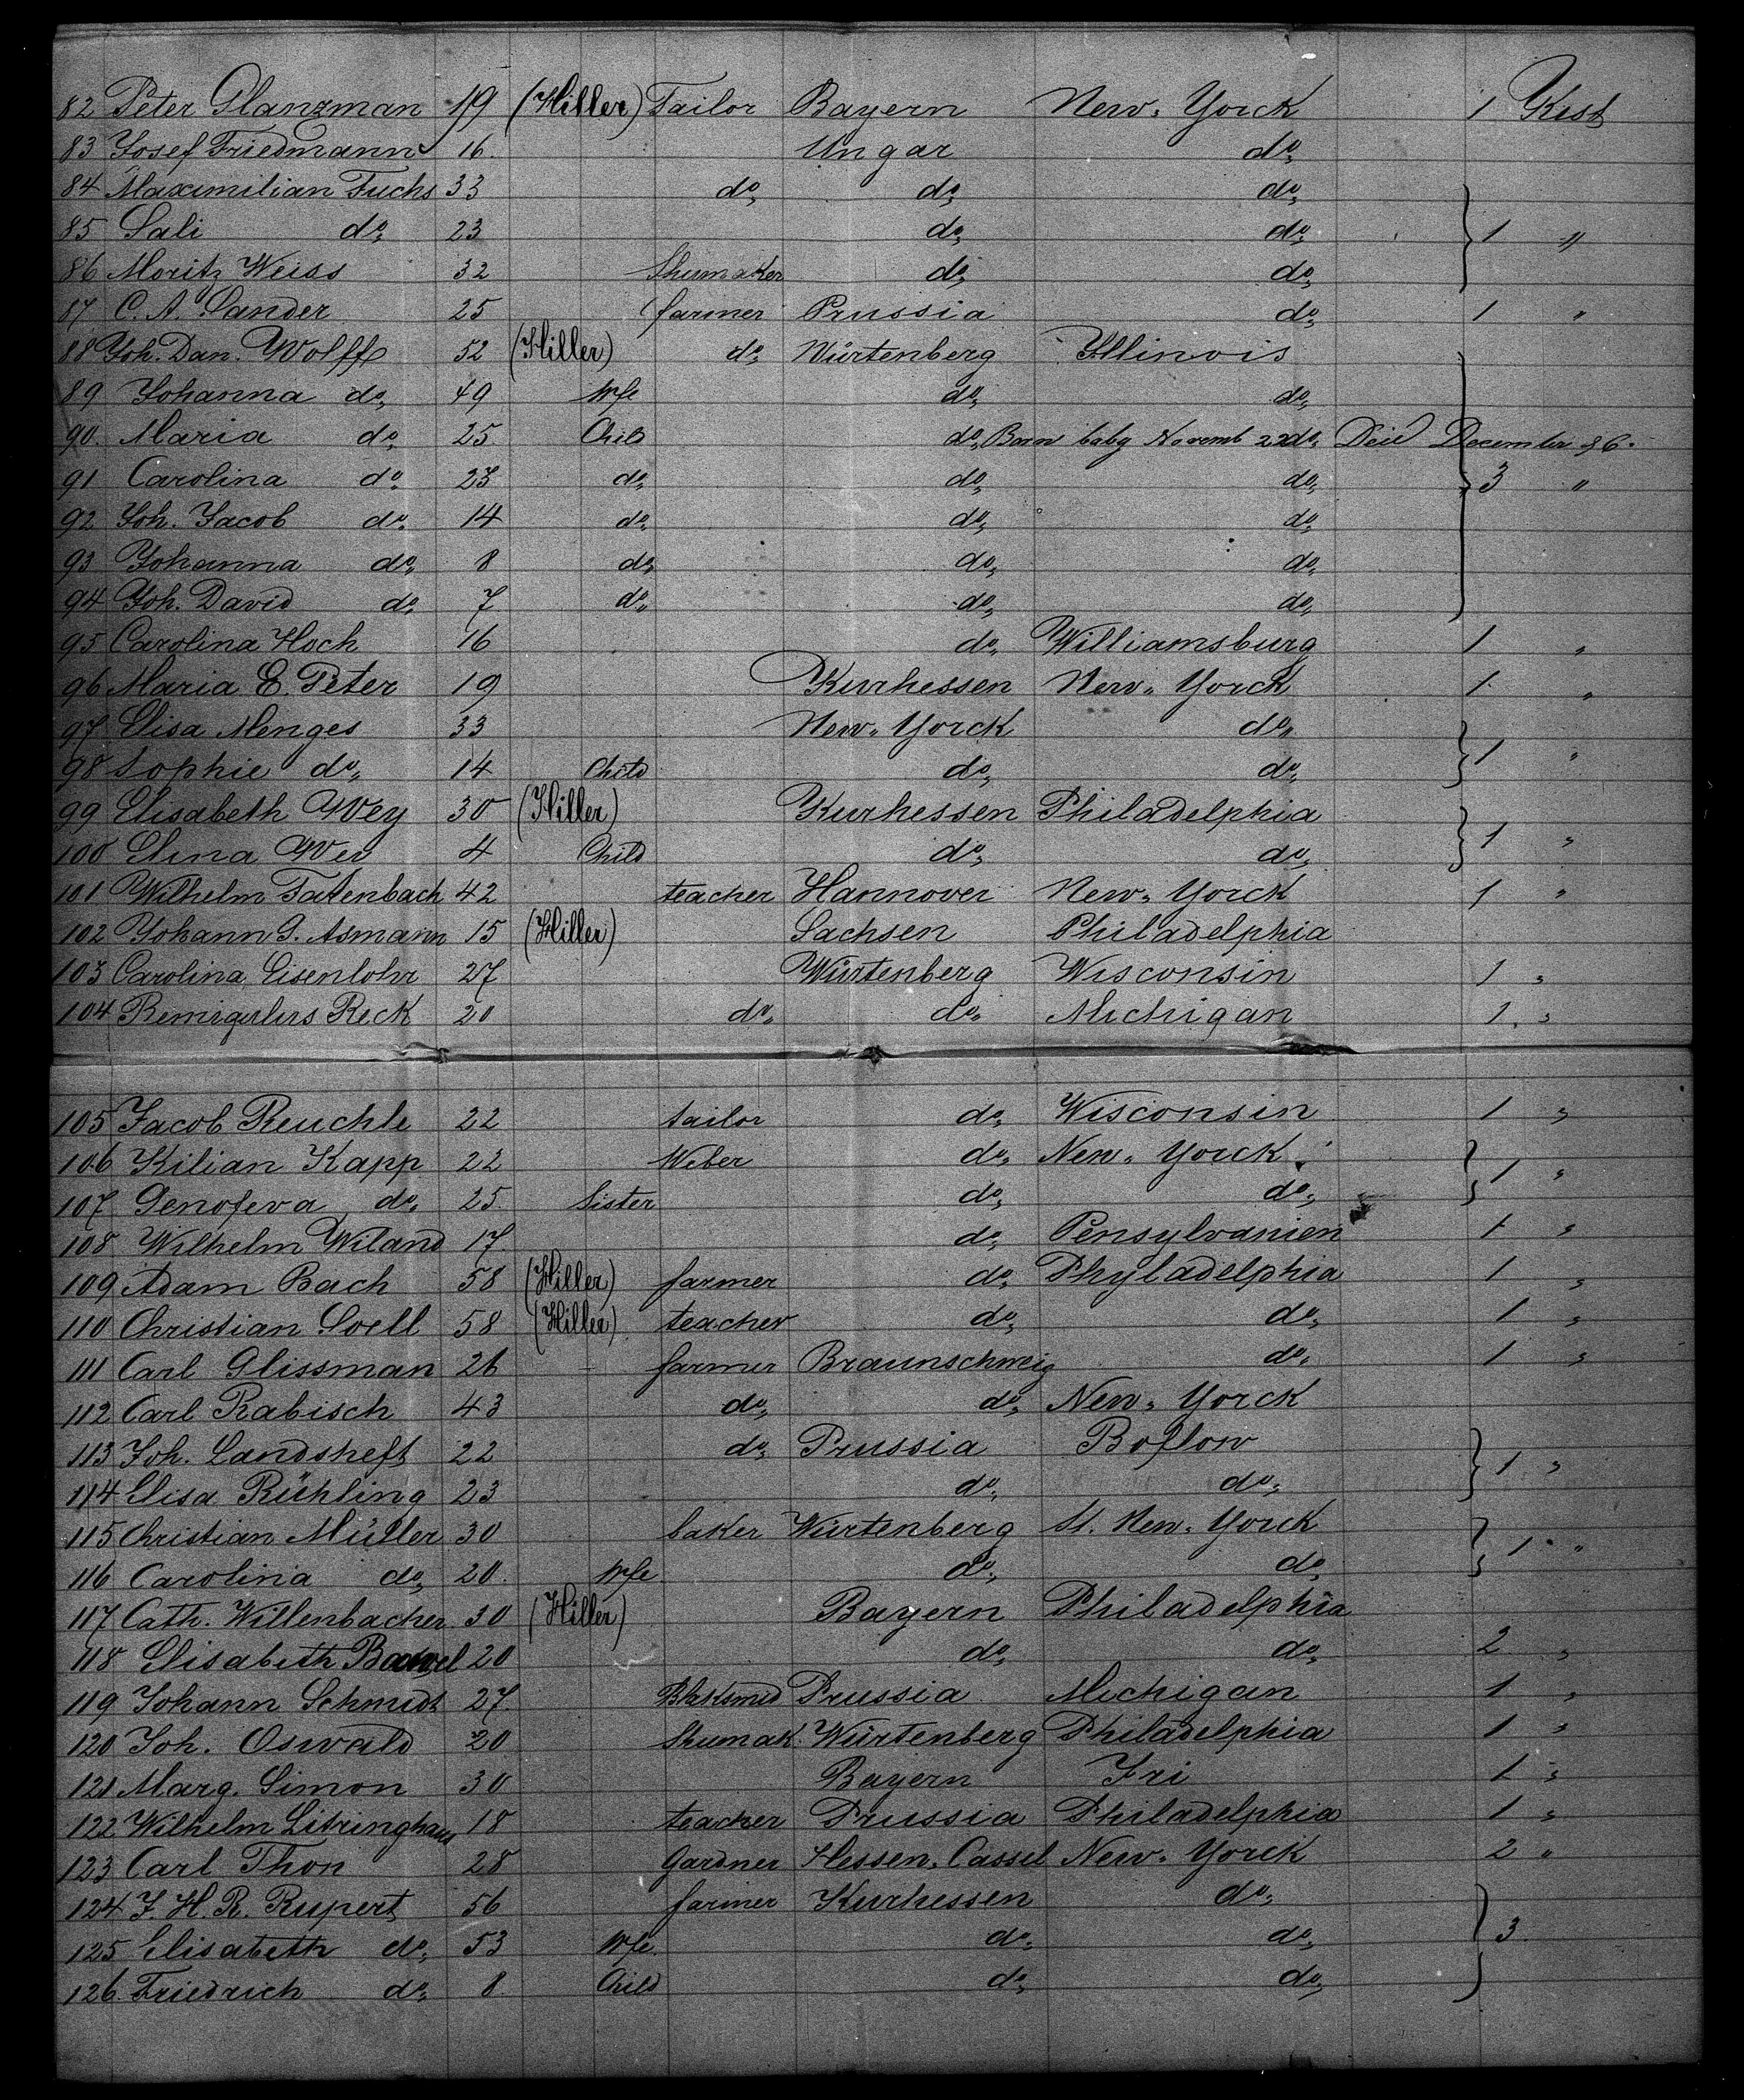 82 Peter Glanzman 19 (Hiller) Tailor Bayern New-Yorck 1 Kist
83 Josef Friedmann 16. Ungar do
84 Maximilian Fuchs 33 do do do
85 Sali do 23 do do 1 "
86 Moritz Weiss 32 Shumaker do do
87 C. A. Sander 25 farmer Prussia do 1 "
88 Joh. Dan. Wolff 52 (Hiller) do Würtenberg Illinois
89 Johanna do 49 Wfe do do
90. Maria do 25 Child do Born baby Novemb 22 do Deid December
91 Carolina do 23 do do do 3 "
92 Joh. Jacob do 14 do do do
93 Johanna do 8 do do do
94 Joh. David do 7 do do do
95 Carolina Hoch 16 do Williamsburg 1 "
96 Maria E. Peter 19 Kurhessen New-Yorck 1. "
97 Elisa Menges 33 New-Yorck do
98 Sophie do 14 Child do do 1 "
99 Elisabeth Wey 30 (Hiller) Kurhessen Philadelphia
100 Elina Wey 4 Child do do 1 "
101 Wilhelm Fatenbach 42 teacher Hannover New-Yorck 1 "
102 Johann G. Asmann 15 (Hiller) Sachsen Philadelphia
103 Carolina Eisenlohr 27 Würtenberg Wisconsin 1 "
104 Reck 20 do do Michigan 1. "
105 Jacob Reuchle 22 tailor do Wisconsin 1 "
106 Kilian Kapp 22 Weber do New-Yorck
107 Genofeva do 25. Sister do do 1 "
108 Wilhelm Wiland 17. do Pensylvanien 1 "
109 Adam Bach 58 (Hiller) farmer do Phyladelphia 1 "
110 Christian Soell 58 (Hiller) teacher do do 1 "
111 Carl Glissman 26 farmer Braunschweig do 1 "
112 Carl Rabisch 43 do do New-Yorck
113 Joh. Landsheft 22 do Prussia Boflow
114 Elisa Rühling 23 do do 1 "
115 Christian Müller 30 baker Würtenberg St. New-Yorck
116 Carolina do 20. Wfe do do 1 "
117 Cath. Willenbacher 30 (Hiller) Bayern Philadelphia
118 Elisabeth 20 do do 2 "
119 Johann Schmidt 27. Blaksmid Prussia Michigan 1 "
120 Joh. Oswald 20 Shumak. Würtenberg Philadelphia 1 "
121 Marg. Simon 30 Bayern Iri 1 "
122 Wilhelm Litringhaus 18 teacher Prussia Philadelphia 1 "
123 Carl Thon 28 Gardner Hessen-Cassel New-Yorck 2 "
124 F. H. R. Rupert 56 farmer Kurhessen do
125 Elisabeth do 53 Wfe. do do 3
126. Friedrich do 8 Child do do